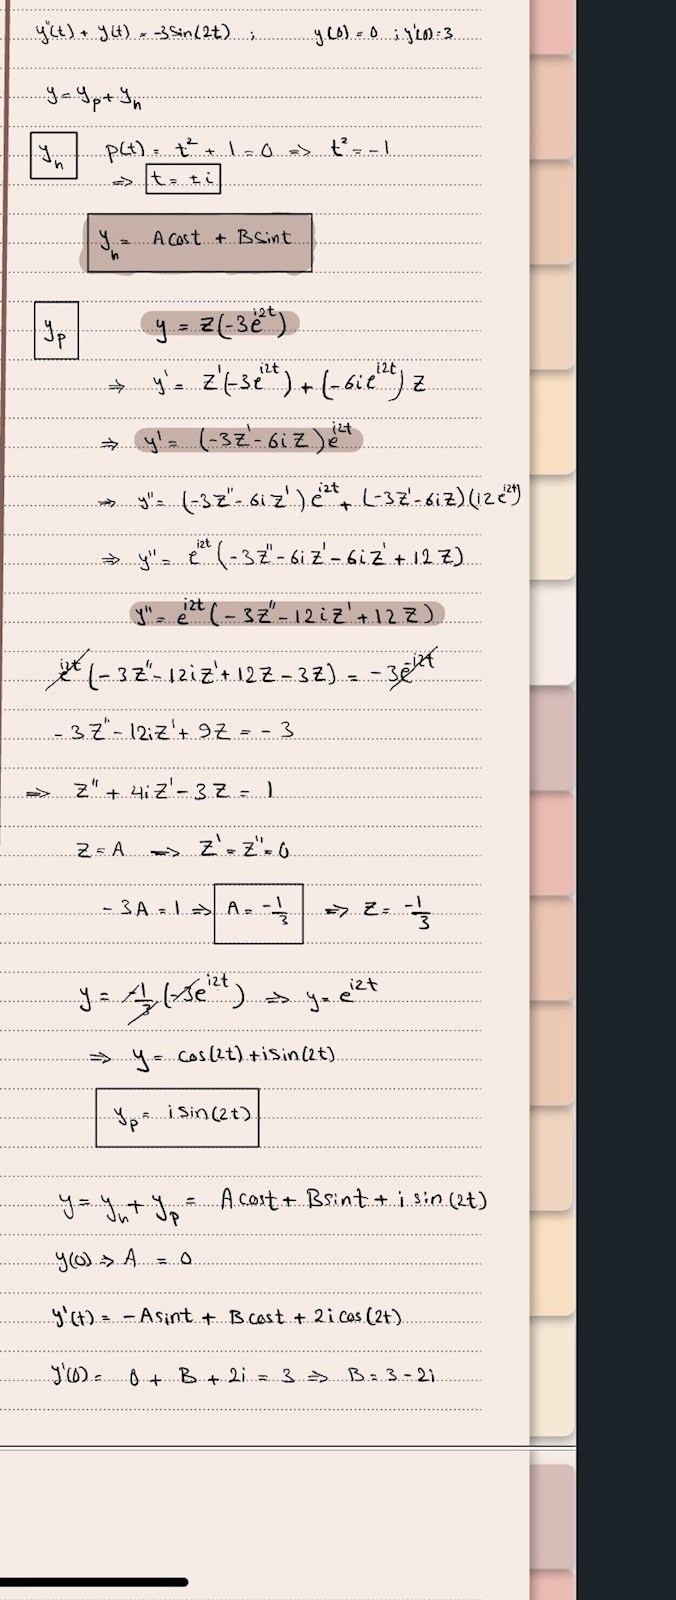 y''(t) + y(t) = -3sin(2t) ; y(0) = 0 ; y'(0) = 3
y = y_p + y_h
y_h p(t) = t² + 1 = 0 => t² = -1
=> t = ±i
y_h = Acost + Bsint
y_p y = z(-3e^{i2t})
=> y' = z'(-3e^{i2t}) + (-6ie^{i2t}) z
=> y' = (-3z' - 6iz)e^{i2t}
=> y'' = (-3z'' - 6iz')e^{i2t} + (-3z' - 6iz)(i2e^{i2t})
=> y'' = e^{i2t}(-3z'' - 6iz' - 6iz' + 12z)
y'' = e^{i2t}(-3z'' - 12iz' + 12z)
e^{i2t}(-3z'' - 12iz' + 12z - 3z) = -3e^{i2t}
-3z'' - 12iz' + 9z = -3
=> z'' + 4iz' - 3z = 1
z = A => z' = z'' = 0
-3A = 1 => A = -1/3 => z = -1/3
y = -1/3 (-3e^{i2t}) => y = e^{i2t}
=> y = cos(2t) + isin(2t)
y_p = isin(2t)
y = y_h + y_p = Acost + Bsint + isin(2t)
y(0) => A = 0
y'(t) = -Asint + Bcost + 2icos(2t)
y'(0) = 0 + B + 2i = 3 => B = 3 - 2i